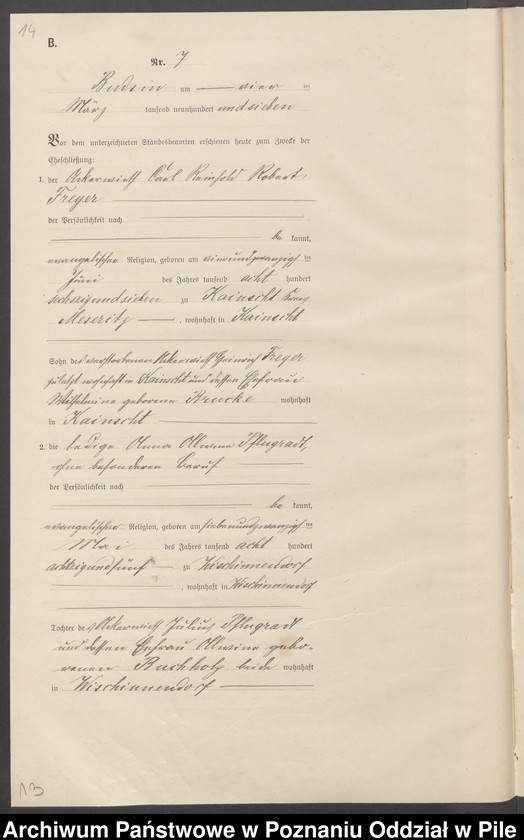 14
B.
Nr. 7
Budsin am vier ten
März tausend neunhundert und sieben
Vor dem unterzeichneten Standesbeamten erschienen heute zum Zwecke der
Eheschließung:
1. der Ackerwirth Carl Reinhold Robert
Freyer
der Persönlichkeit nach
be kannt,
evangelischer Religion, geboren am vierundzwanzigsten
Juni des Jahres tausend acht hundert
sechszigundsieben zu Kainscht Kreis
Meseritz, wohnhaft in Kainscht
Sohn des verstorbenen Ackerwirth Heinrich Freyer
zuletzt wohnhaft in Kainscht und dessen Ehefrau
Wilhelmine geborene Brucke wohnhaft
in Kainscht
2. die ledige Anna Ottwine Pflugradt,
ohne besonderen Beruf
der Persönlichkeit nach
be kannt,
evangelischer Religion, geboren am siebenundzwanzigsten
Mai des Jahres tausend acht hundert
achtzigundfünf zu Wischinnendorf
, wohnhaft in Wischinnendorf
Tochter des Ackerwirth Julius Pflugradt
und dessen Ehefrau Ottwine gebo-
renen Buchholz beide wohnhaft
in Wischinnendorf
13
Archiwum Państwowe w Poznaniu Oddział w Pile